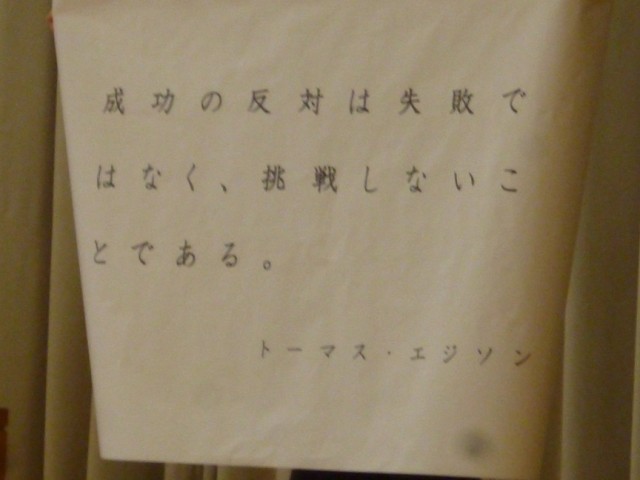 成功の反対は失敗で
はなく、挑戦しないこ
とである。
トーマス・エジソン